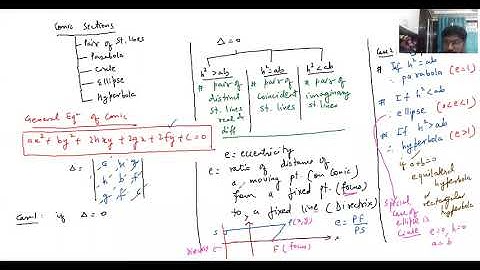 Conic Sections
Pair of St. lines
Parabola
Circle
Ellipse
Hyperbola
General Eqⁿ of Conic
ax² + by² + 2hxy + 2gx + 2fy + c = 0
Δ = | a h g
h b f
g f c |
Case 1: if Δ = 0
Δ = 0
h² > ab
# pair of distinct St. lines real & diff
h² = ab
# pair of coincident St. lines
h² < ab
# pair of imaginary st. lines
e = eccentricity
e = ratio of distance of
a moving pt. (on Conic)
from a fixed pt. (focus)
to, a fixed line (Directrix)
P(x,y)
e = PF/PS
S
F (focus)
Case 2
# If h² = ab
∴ parabola (e=1)
# If h² < ab
∴ ellipse (0<e<1)
# If h² > ab
∴ hyperbola (e>1)
if a+b=0
equilateral hyperbola
or rectangular hyperbola
Special Case of ellipse is Circle
e=0, h=0
a=b